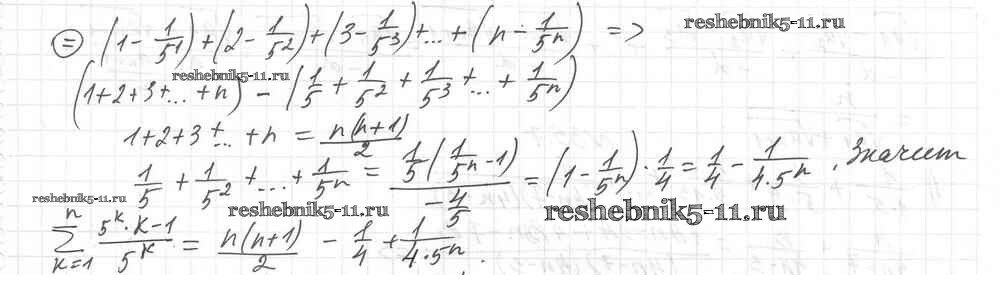 reshebnik5-11.ru
⊜ (1 - 1/5¹) + (2 - 1/5²) + (3 - 1/5³) + ... + (n - 1/5ⁿ) =>
reshebnik5-11.ru
(1+2+3+...+n) - (1/5 + 1/5² + 1/5³ + ... + 1/5ⁿ)
1+2+3+...+n = n(n+1)/2
1/5 + 1/5² + ... + 1/5ⁿ = 1/5(1/5ⁿ - 1)/(-4/5) = (1 - 1/5ⁿ) · 1/4 = 1/4 - 1/(4·5ⁿ). Значит
reshebnik5-11.ru
reshebnik5-11.ru
reshebnik5-11.ru
∑ₖ₌₁ⁿ (5ᵏ·k-1)/5ᵏ = n(n+1)/2 - 1/4 + 1/(4·5ⁿ).